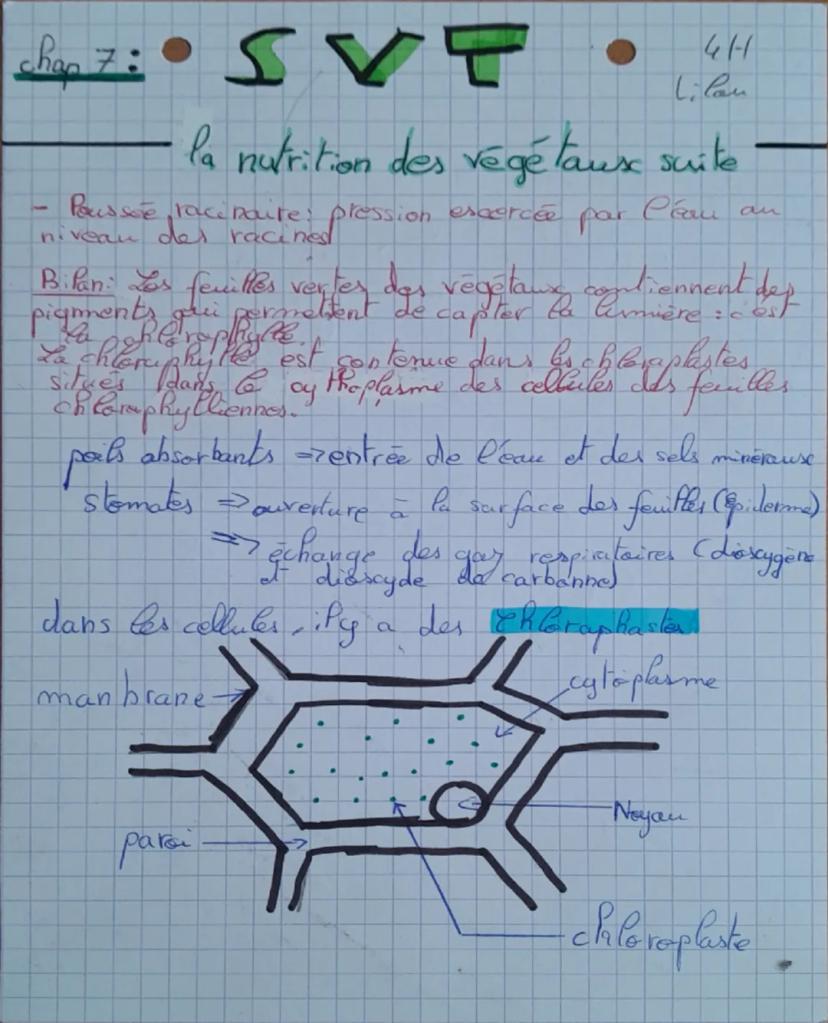 chap 7 : SVT 4H
Lilou
la nutrition des végétaux suite
- Poussée racinaire : pression exercée par l'éau au
niveau des racines
Bilan : Les feuilles vertes des végétaux contiennent des
pigments qui permettent de capter la lumière : c'est
la chlorophylle.
La chloraphylle est contenue dans les chloraplastes
situés dans le cythoplasme des cellules des feuilles
chloraphylliennes.
poils absorbants => entrée de l'éau et des sels minéraux
stomates => ouverture à la surface des feuilles (épiderme)
=> échange des gaz respiratoires (dioxygène
et dioxyde de carbonne)
dans les cellules, il y a des chloraphastes
manbrane
cytoplasme
Noyau
paroi
chloroplaste